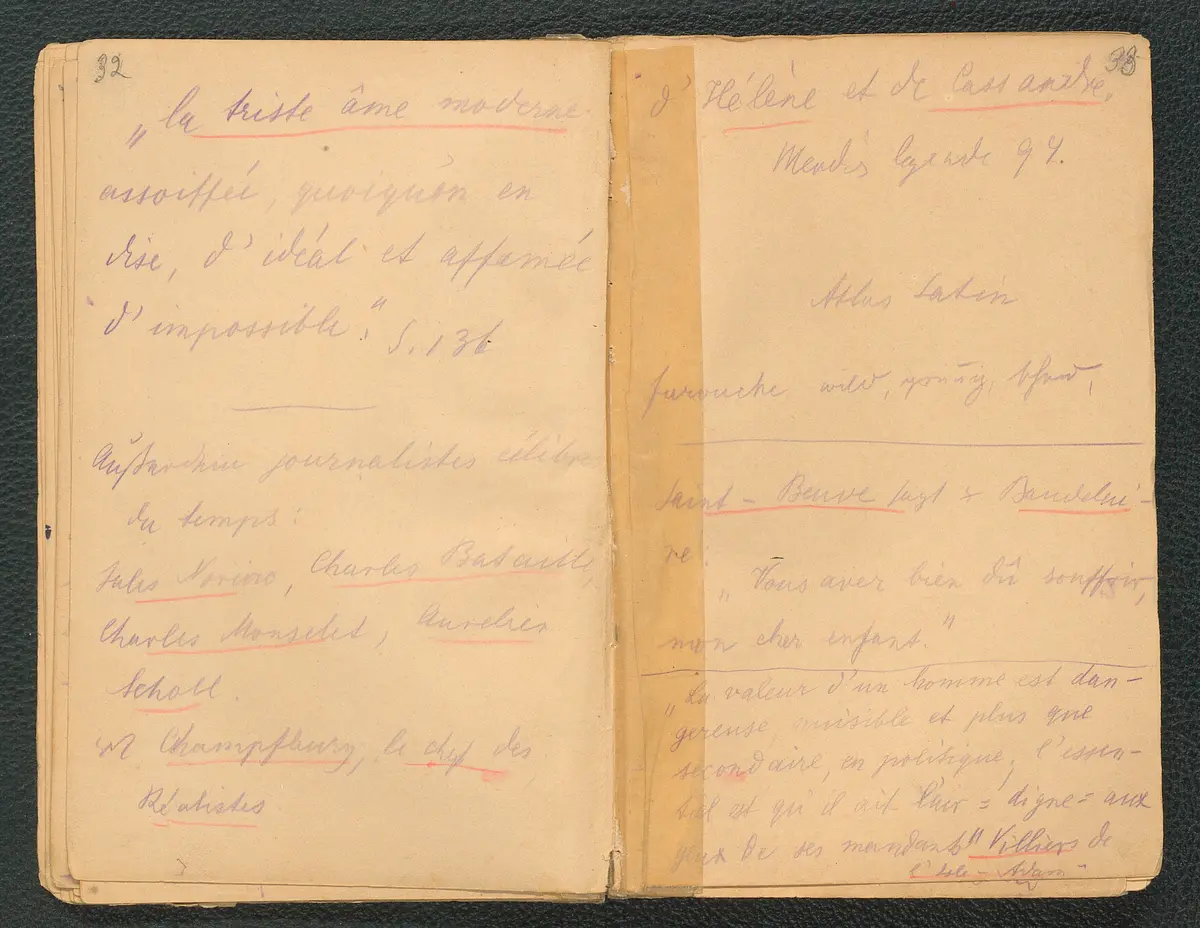 32
„la triste âme moderne
assoiffée, quoiqu'on en
dise, d'idéal et affamée
d'impossible." S. 136
Außerdem journalistes célèbre
du temps:
Jules Noriac, Charles Bataille,
Charles Monselet, Aurelien
Scholl.
Champfleury, le chef des
Réalistes
33
d'Hélène et de Cassandre.
Mendès legende 94.
Atlas Latin
farouche wild,
Saint-Beuve sagt z Baudelai-
re:
„Vous avez bien dû souffrir,
mon cher enfant."
„La valeur d'un homme est dan-
gereuse, nuisible et plus que
secondaire, en politique; l'essen-
tiel est qu'il ait l'air =digne= aux
yeux de ses mandants" Villiers de
l'Isle-Adam